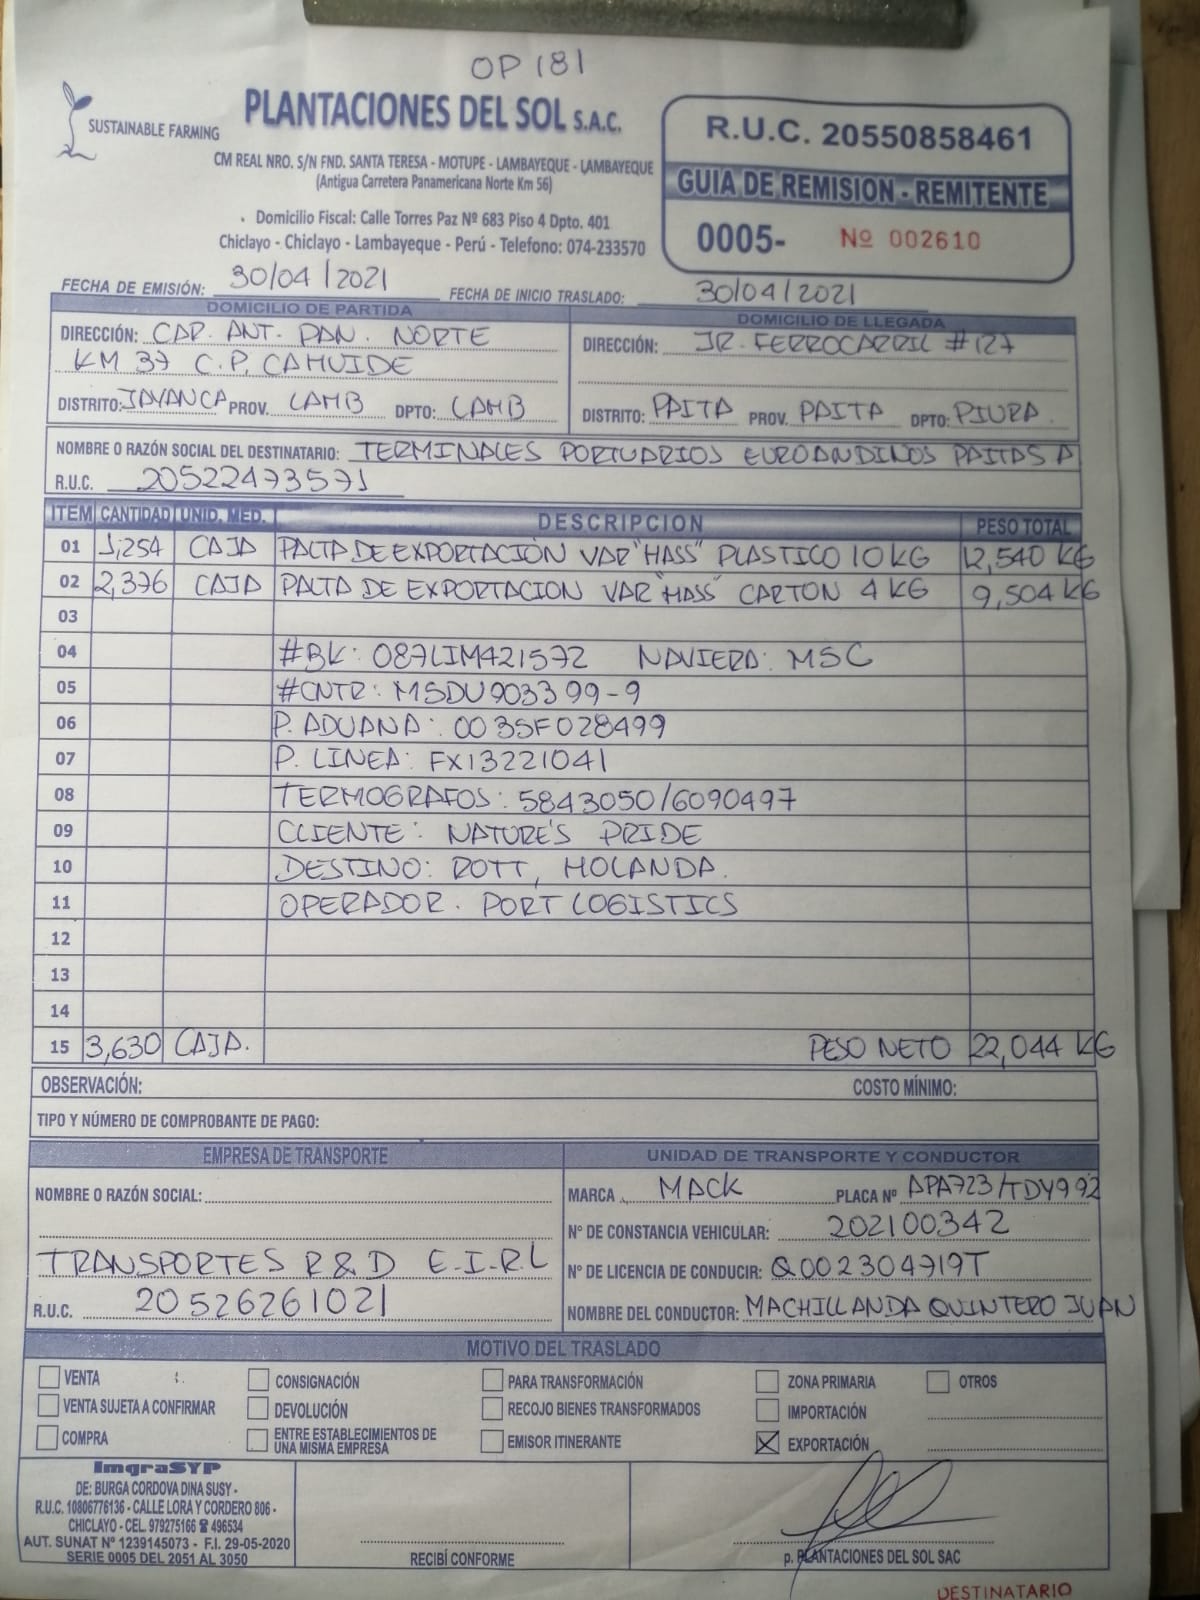 OP 181
SUSTAINABLE FARMING
PLANTACIONES DEL SOL S.A.C.
CM REAL NRO. S/N FND. SANTA TERESA - MOTUPE - LAMBAYEQUE - LAMBAYEQUE
(Antigua Carretera Panamericana Norte Km 56)
Domicilio Fiscal: Calle Torres Paz Nº 683 Piso 4 Dpto. 401
Chiclayo - Chiclayo - Lambayeque - Perú - Telefono: 074-233570
R.U.C. 20550858461
GUIA DE REMISION - REMITENTE
0005- Nº 002610
FECHA DE EMISIÓN: 30/04/2021 FECHA DE INICIO TRASLADO: 30/04/2021
DOMICILIO DE PARTIDA
DIRECCIÓN: CAR. ANT. PAN. NORTE
KM 37 C.P. CAHUIDE
DISTRITO: JAYANCA PROV. LAMB DPTO: LAMB
DOMICILIO DE LLEGADA
DIRECCIÓN: JR. FERROCARRIL #127
DISTRITO: PAITA PROV. PAITA DPTO: PIURA.
NOMBRE O RAZÓN SOCIAL DEL DESTINATARIO: TERMINALES PORTUARIOS EUROANDINOS PAITA S A
R.U.C. 20522473571
ITEM CANTIDAD UNID. MED. DESCRIPCION PESO TOTAL
01 1,254 CAJA PALTA DE EXPORTACIÓN VAR "HASS" PLASTICO 10 KG 12,540 KG
02 2,376 CAJA PALTA DE EXPORTACION VAR "HASS" CARTON 4 KG 9,504 KG
03
04 #BK: 087LIM421572 NAVIERA: MSC
05 #CNTR: MSDU903399-9
06 P. ADUANA: 0035F028499
07 P. LINEA: FX13221041
08 TERMOGRAFOS: 5843050/6090497
09 CLIENTE: NATURE'S PRIDE
10 DESTINO: ROTT, HOLANDA.
11 OPERADOR. PORT LOGISTICS
12
13
14
15 3,630 CAJA. PESO NETO 22,044 KG
OBSERVACIÓN: COSTO MÍNIMO:
TIPO Y NÚMERO DE COMPROBANTE DE PAGO:
EMPRESA DE TRANSPORTE
NOMBRE O RAZÓN SOCIAL:
TRANSPORTES R&D E.I.R.L
R.U.C. 20526261021
UNIDAD DE TRANSPORTE Y CONDUCTOR
MARCA MACK PLACA Nº APA723/TDY992
Nº DE CONSTANCIA VEHICULAR: 202100342
Nº DE LICENCIA DE CONDUCIR: Q002304719T
NOMBRE DEL CONDUCTOR: MACHILLANDA QUINTERO JUAN
MOTIVO DEL TRASLADO
VENTA CONSIGNACIÓN PARA TRANSFORMACIÓN ZONA PRIMARIA OTROS
VENTA SUJETA A CONFIRMAR DEVOLUCIÓN RECOJO BIENES TRANSFORMADOS IMPORTACIÓN
COMPRA ENTRE ESTABLECIMIENTOS DE UNA MISMA EMPRESA EMISOR ITINERANTE X EXPORTACIÓN
ImgraSYP
DE: BURGA CORDOVA DINA SUSY -
R.U.C. 10806776136 - CALLE LORA Y CORDERO 806 -
CHICLAYO - CEL. 979275166 ☎ 496534
AUT. SUNAT Nº 1239145073 - F.I. 29-05-2020
SERIE 0005 DEL 2051 AL 3050
RECIBÍ CONFORME
p. PLANTACIONES DEL SOL SAC
DESTINATARIO